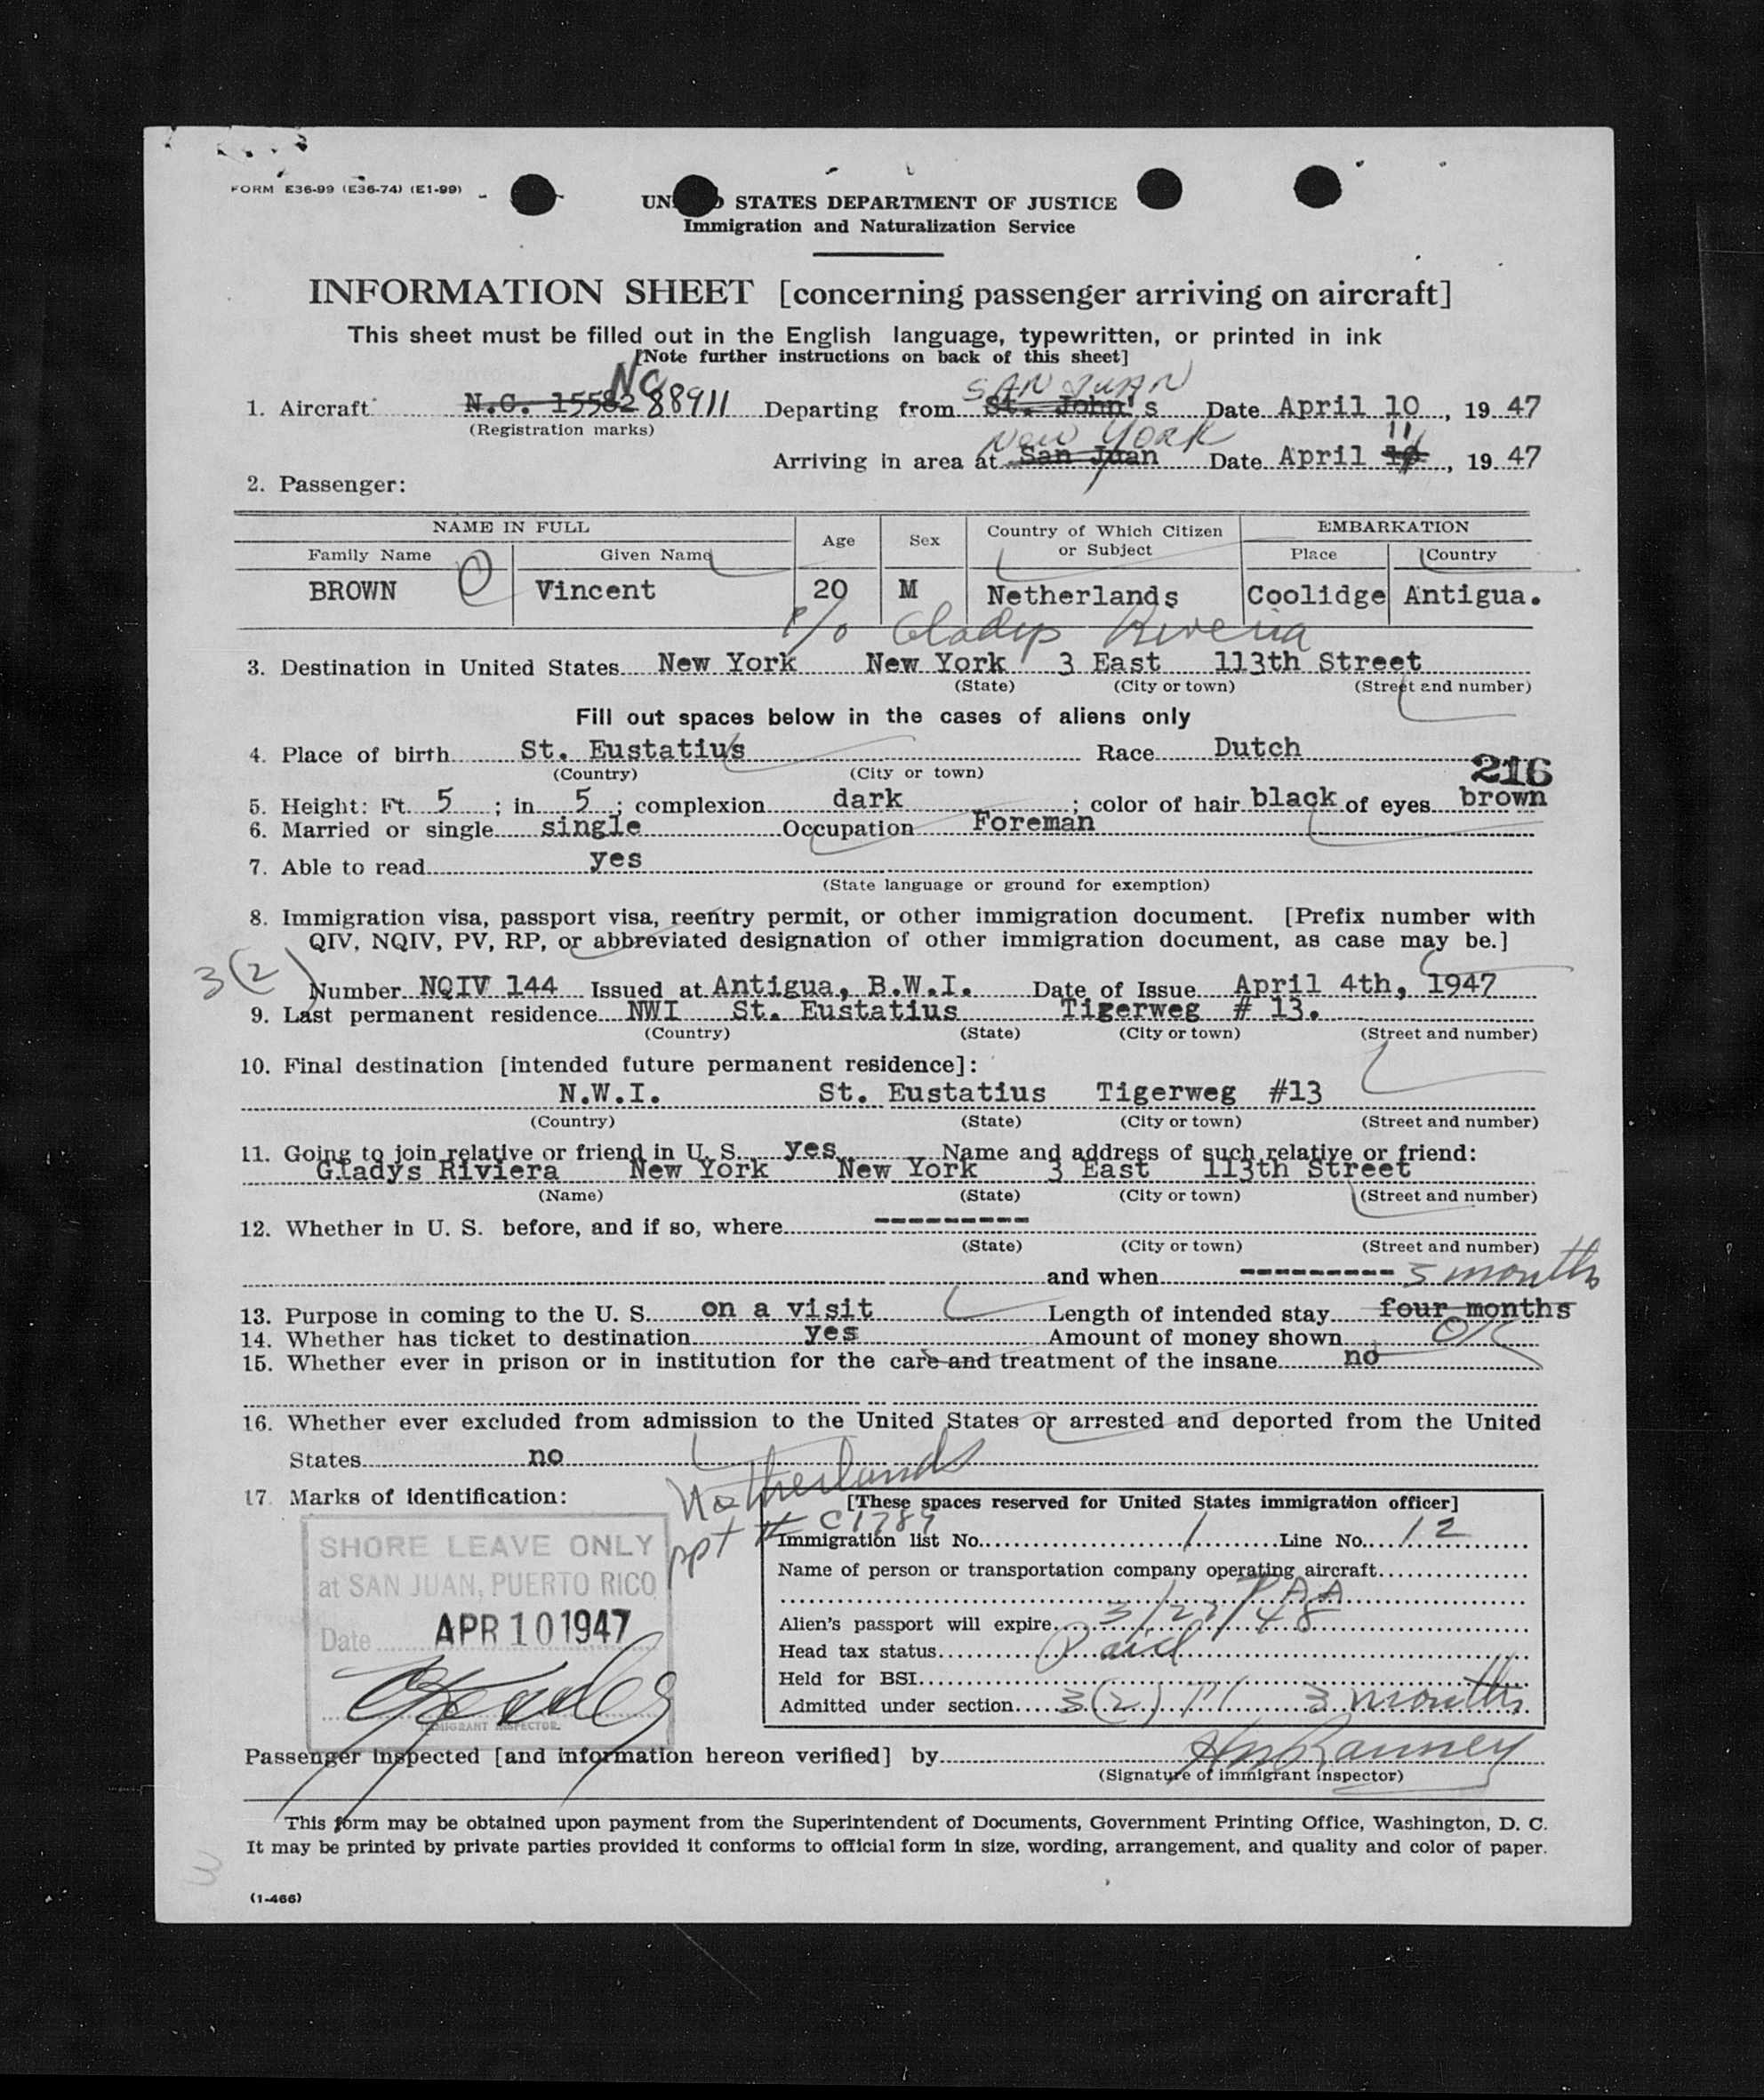 FORM E36-99 (E36-74) (E1-99)
STATES DEPARTMENT OF JUSTICE
Immigration and Naturalization Service
INFORMATION SHEET [concerning passenger arriving on aircraft]
This sheet must be filled out in the English language, typewritten, or printed in ink
[Note further instructions on back of this sheet]
NC SAN JUAN
1. Aircraft N.C. 15582 88911 Departing from St. John's Date April 10, 19 47
(Registration marks)
New York 11
Arriving in area at San Juan Date April 10, 19 47
2. Passenger:
NAME IN FULL Age Sex Country of Which Citizen or Subject EMBARKATION
Family Name Given Name Place Country
BROWN Vincent 20 M Netherlands Coolidge Antigua.
c/o Gladys Riveria
3. Destination in United States New York New York 3 East 113th Street
(State) (City or town) (Street and number)
Fill out spaces below in the cases of aliens only
4. Place of birth St. Eustatius Race Dutch
(Country) (City or town)
216
5. Height: Ft. 5; in 5; complexion dark; color of hair black of eyes brown
6. Married or single single Occupation Foreman
7. Able to read yes
(State language or ground for exemption)
8. Immigration visa, passport visa, reentry permit, or other immigration document. [Prefix number with
QIV, NQIV, PV, RP, or abbreviated designation of other immigration document, as case may be.]
3(2)
Number NQIV 144 Issued at Antigua, B.W.I. Date of Issue April 4th, 1947
9. Last permanent residence NWI St. Eustatius Tigerweg # 13.
(Country) (State) (City or town) (Street and number)
10. Final destination [intended future permanent residence]:
N.W.I. St. Eustatius Tigerweg #13
(Country) (State) (City or town) (Street and number)
11. Going to join relative or friend in U. S. yes Name and address of such relative or friend:
Gladys Riviera New York New York 3 East 113th Street
(Name) (State) (City or town) (Street and number)
12. Whether in U. S. before, and if so, where ---------
(State) (City or town) (Street and number)
and when ---------- 3 months
13. Purpose in coming to the U. S. on a visit Length of intended stay four months
14. Whether has ticket to destination yes Amount of money shown OK
15. Whether ever in prison or in institution for the care and treatment of the insane no
16. Whether ever excluded from admission to the United States or arrested and deported from the United
States no
Netherlands
ppt # C1789
17. Marks of identification:
SHORE LEAVE ONLY
at SAN JUAN, PUERTO RICO
Date APR 10 1947
IMMIGRANT INSPECTOR.
[These spaces reserved for United States immigration officer]
Immigration list No. 1 Line No. 12
Name of person or transportation company operating aircraft
PAA
Alien's passport will expire 3/27/48
Head tax status Paid
Held for BSI
Admitted under section 3(2) P1 3 months
Passenger inspected [and information hereon verified] by
(Signature of immigrant inspector)
This form may be obtained upon payment from the Superintendent of Documents, Government Printing Office, Washington, D. C.
It may be printed by private parties provided it conforms to official form in size, wording, arrangement, and quality and color of paper.
3
(1-466)